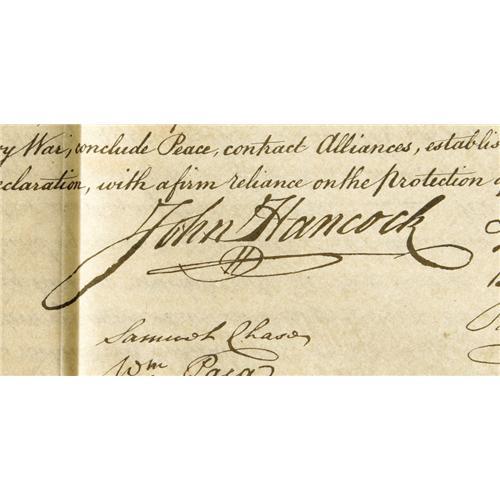 War, conclude Peace, contract Alliances, establis
eclaration, with a firm reliance on the Protection
John Hancock
Samuel Chase
Wm Paca